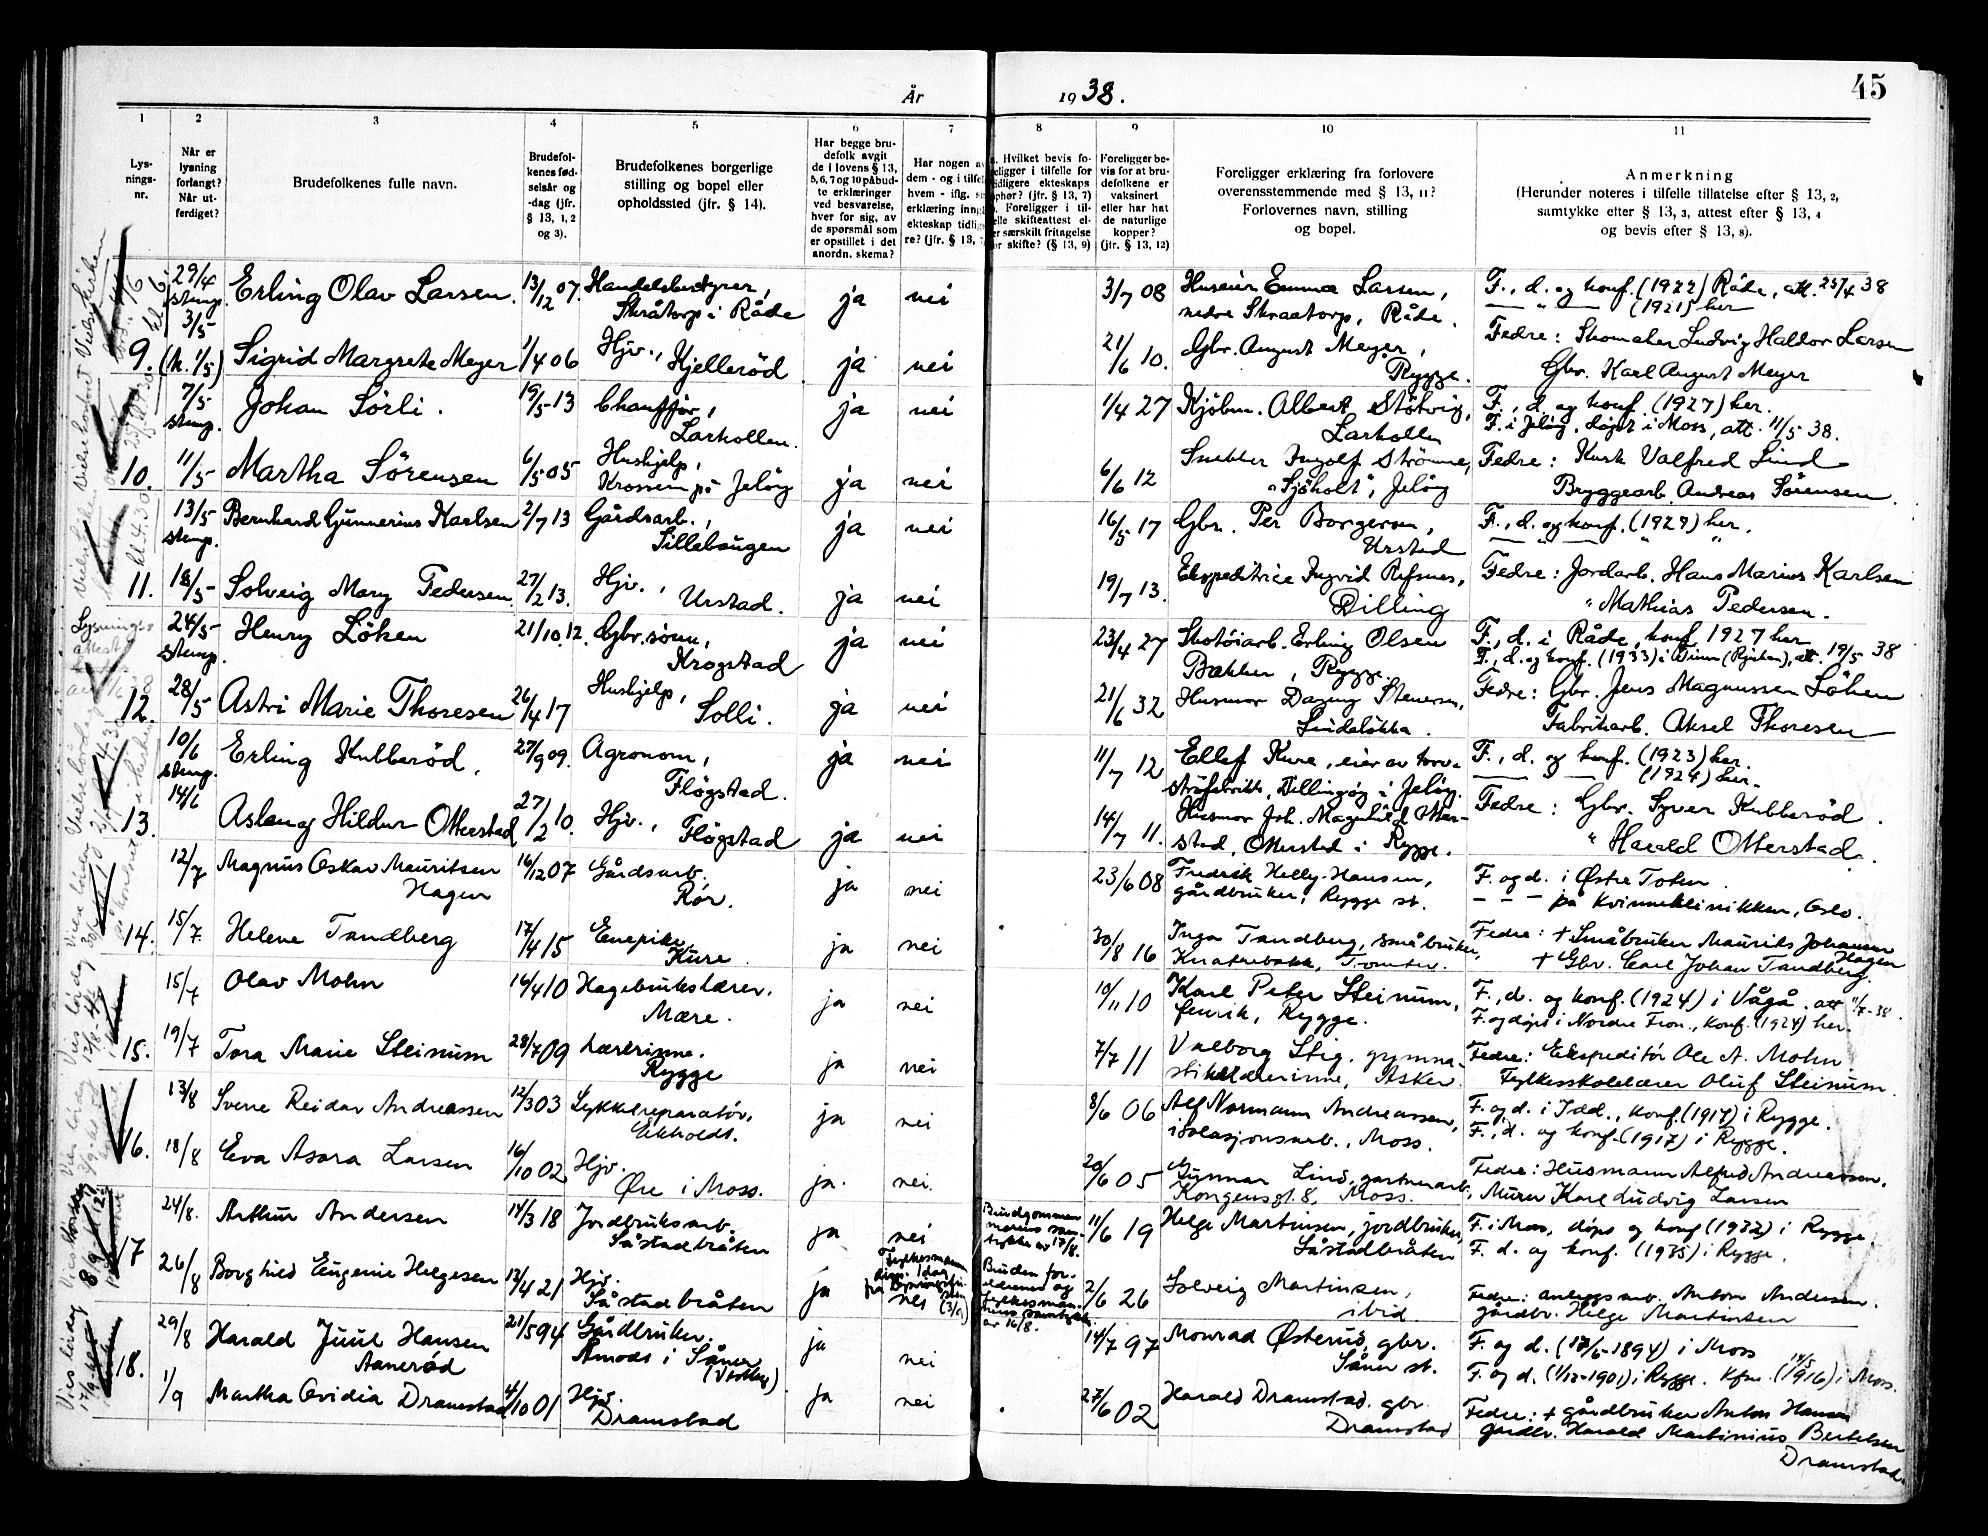 45
År 1938.
1 2 3 4 5 6 7 8 9 10 11
Lys-
nings-
nr.
Når er
lysning
forlangt?
Når ut-
ferdiget?
Brudefolkenes fulle navn.
Brudefol-
kenes fød-
selsår og
-dag (jfr.
§ 13, 1, 2
og 3).
Brudefolkenes borgerlige
stilling og bopel eller
opholdssted (jfr. § 14).
Har begge bru-
defolk avgit
de i lovens § 13,
5, 6, 7 og 10 påbud-
te erklæringer
ved besvarelse,
hver for sig, av
de spørsmål som
er opstillet i det
anordn. skema?
Har nogen av
dem - og i tilfel
hvem - iflg.
erklæring inng
ekteskap tidlig
re? (jfr. § 13,
Hvilket bevis fo-
religger i tilfelle for
tidligere ekteskaps
ophør? (jfr. § 13, 7)
Foreligger i til-
elle skifteattest el-
er særskilt fritagelse
or skifte? (§ 13, 9)
Foreligger be-
vis for at bru-
defolkene er
vaksinert
eller har hat
de naturlige
kopper?
(jfr. § 13, 12)
Foreligger erklæring fra forlovere
overensstemmende med § 13, 11?
Forlovernes navn, stilling
og bopel.
Anmerkning
(Herunder noteres i tilfelle tillatelse efter § 13, 2,
samtykke efter § 13, 3, attest efter § 13, 4
og bevis efter § 13, 8).
29/4 stemp. 3/5 Erling Olav Larsen. 13/12 07. Handelsbestyrer, Skråtorp i Råde ja nei 3/7 08 Huseier Emma Larsen, nedre Skraatorp, Råde. F., d. og konf. (1922) Råde, att. 25/4 38
— " — (1921) her
9. (k. 1/5) Sigrid Margrete Meyer 1/4 06 Hjv., Kjellerød ja nei 21/6 10. Gbr. August Meyer, Rygge. Fedre: Skomaker Ludvig Halvor Larsen
Gbr. Karl August Meyer
7/5 stemp. Johan Sørli. 19/5 13 Chauffør, Larkollen. ja nei 1/4 27 Kjøbm. Albert Støtvig, Larkollen F., d. og konf. (1927) her.
F. i Jeløy, døpt i Moss, att. 11/5 38.
10. 11/5 Martha Sörensen 6/5 05 Hushjelp, Krossern på Jeløy ja nei 6/6 12 Snekker Ingolf Strömme, "Sjöholt", Jeløy Fedre: Kusk Valfred Lind
Bryggearb. Andreas Sörensen.
13/5 stemp. Bernhard Gunnerius Karlsen 2/7 13 Gårdsarb., Sillebaugen ja nei 16/5 17 Gbr. Per Borgersen, Urstad F., d. og konf. (1929) her.
— " — " "
11. 18/5 Solveig Mary Pedersen. 27/2 13. Hjv., Urstad. ja nei 19/7 13. Ekspeditrice Ingrid Refsnes, Dilling Fedre: Jordarb. Hans Marius Karlsen
" Mathias Pedersen.
24/5 stemp. Henry Löken 21/10. 12. Gbr. sönn, Krogstad ja nei 23/4 27 Skotøiarb. Erling Olsen Bækken, Rygge. F., d. i Råde, konf 1927 her
F., d. og konf. (1933) i Tinn (Rjukan), att. 19/5 38
12. 28/5 Astri Marie Thoresen 26/4 17 Hushjelp, Solli. ja nei 21/6 32 Husmor Dagny Stenersen, Lindeløkka. Fedre: Gbr. Jens Magnussen Löken
Fabrikarb. Aksel Thoresen
10/6 stemp. Erling Kubberöd, 27/9 09. Agronom, Fløgstad. ja nei 11/7 12 Ellef Kure, eier av torv-
ströfabrikk, Dillingøy i Jeløy. F., d. og konf. (1923) her.
— — (1924) her.
13. 14/6 Aslaug Hildur Otterstad 27/2 10. Hjv., Fløgstad ja nei 14/7 11. Husmor Joh. Magnhild Otter-
stad, Otterstad i Rygge. Fedre: Gbr. Syver Kubberöd.
" Harald Otterstad.
12/7 Magnus Oskar Mauritsen Hagen 16/12 07 Gårdsarb. Rør. ja nei 23/6 08 Fredrik Helly-Hansen, gårdbruker, Rygge st. F. og d. i Østre Toten.
— — — på kvinneklinikken, Oslo.
14. 15/7. Helene Tandberg 17/4 15 Enepike Kure. ja nei 30/8 16 Inga Tandberg, småbruker, Knatrebakk, Tomter. Fedre: + Småbruker Maurits Johansen Hagen
+ Gbr. Carl Johan Tandberg.
15/7 Olav Mohn 14/4 10 Hagebrukslærer. Mære. ja nei 10/11 10 Karl Peter Steinum, fenrik, Rygge. F., d. og konf. (1924) i Vågå. att 11/7-38.
F. og døpt i Nordre Fron., konf. (1924) her.
15. 19/7 Tora Marie Steinum 28/7 09 Lærerinne. Rygge ja nei 7/7 11 Valborg Stig. gymna-
stikklærerinne, Asker. Fedre: Ekspeditör Ole A. Mohn
Fylkesskolelærer Oluf Steinum.
13/8 Sverre Reidar Andreassen 12/3 03 Sykkelreparatör, Ekholdt. ja nei 8/6 06 Alf Normann Andreassen, isolasjonsarb., Moss. F. og d. i Idd., konf. (1917) i Rygge.
F., d. og konf. (1917) i Rygge.
16. 18/8 Eva Asora Larsen 16/10 02 Hjv. Øre i Moss. ja. nei. 20/6 05 Gunnar Lind, gartnerarb. Kongensgt. 8, Moss. Fedre: Husmann Alfred Andreassen.
, Murer Karl Ludvig Larsen
24/8. Arthur Andersen 14/3 18 Jordbruksarb. Såstadbråten ja nei Brudgommen
samtykke av 17/8. 11/6 19 Helge Martinsen, jordbruker, Såstadbråten F. i Moss, döpt og konf (1932) i Rygge
F. d. og konf. (1935) i Rygge.
17 26/8 Borghild Eugenie Helgesen 13/4 21 Hjv. Såstadbråten ja nei (3/9) Bruden for-
eldrenes og
fylkesman-
nens samtykke
av 16/8. 2/6 26 Solveig Martinsen, ibid. Fedre: anleggsarb. Anton Andersen.
gårdbr. Helge Martinsen
29/8 Harald Juul Hansen Aanerød 21/5 94 Gårdbruker. Åmodt i Såner (Vestby) ja nei 14/7 97 Monrad Østerud, gbr. Såner st. F. og d. (17/6-1894) i Moss
F. og d. (1/12-1901) i Rygge. Kfm. (14/5 1916) i Moss.
18. 1/9 Martha Ovidia Dramstad 4/10 01 Hjv. Dramstad ja nei 27/6 02 Harald Dramstad. gbr. Dramstad Fedre: + gårdbruker Anton Hansen
gårdbr. Harald Martinius Bertelsen
Dramstad.